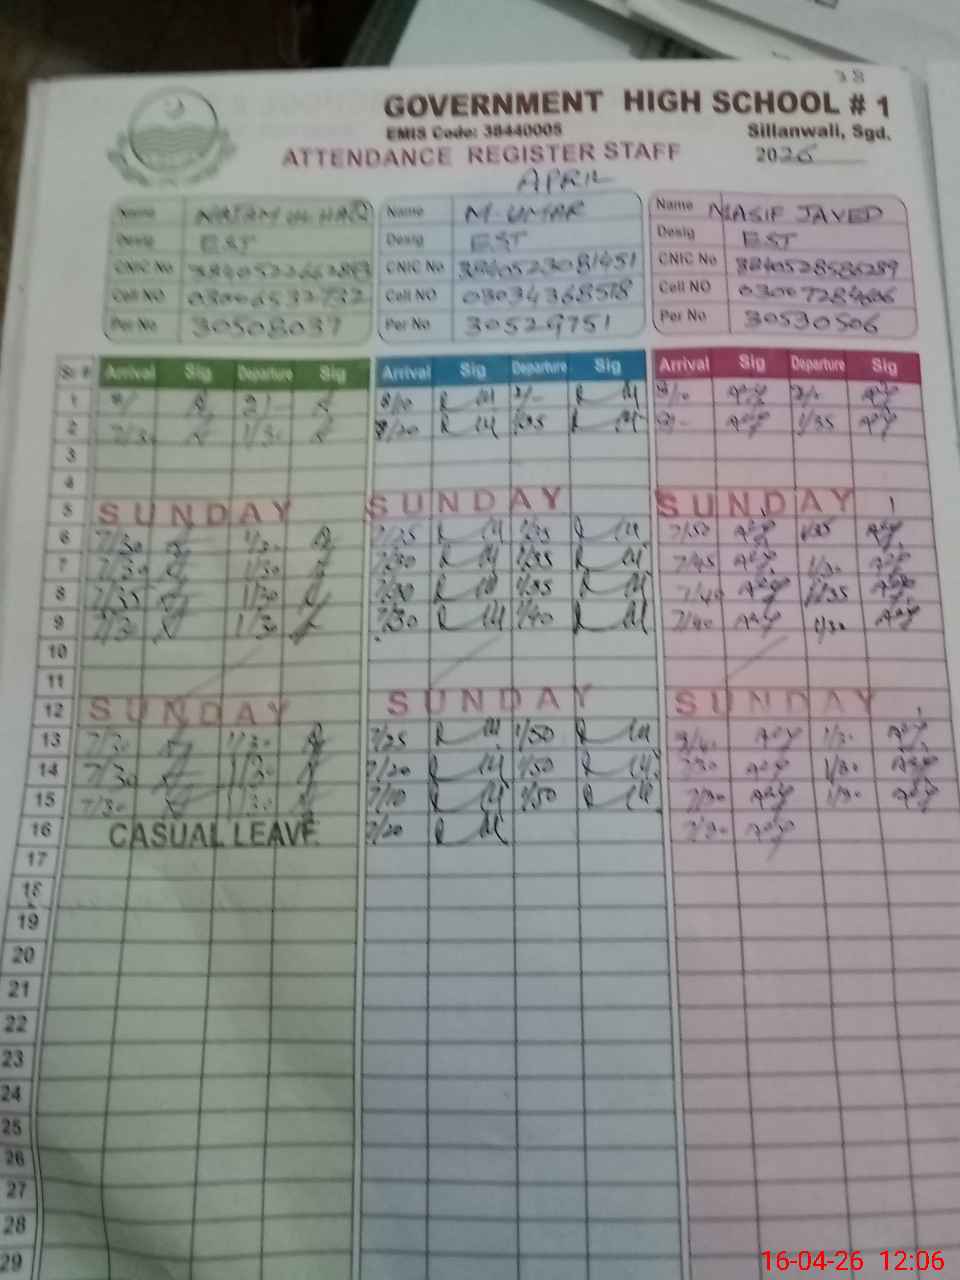 38
GOVERNMENT HIGH SCHOOL # 1
EMIS Code: 38440005 Sillanwali, Sgd.
ATTENDANCE REGISTER STAFF 2026
APRIL
Name NAJAM UL HAQ Name M. UMAR Name M ASIF JAVED
Desig EST Desig EST Desig EST
CNIC No CNIC No 3840523081451 CNIC No 3840528586289
Cell NO 03006532732 Cell NO 03034368518 Cell NO
Per No 30508037 Per No 30529751 Per No 30530506
Sr # Arrival Sig Departure Sig Arrival Sig Departure Sig Arrival Sig Departure Sig
1 8/ 2/- 8/10 2/- 8/10 2/-
2 7/30 1/30 8/20 1/35 8/- 1/35
3
4
5 SUNDAY SUNDAY SUNDAY
6 7/30 1/30 7/25 1/35 7/50 1/35
7 7/30 1/30 7/30 1/35 7/45 1/30
8 7/35 1/30 7/30 1/35 7/40 1/35
9 7/30 1/30 7/30 1/40 7/40 1/30
10
11
12 SUNDAY SUNDAY SUNDAY
13 7/30 1/30 7/25 1/50 1/30
14 7/30 1/30 7/20 1/50 7/30 1/30
15 7/30 1/30 7/10 1/50 7/30 1/30
16 CASUAL LEAVE 7/20 7/30
17
18
19
20
21
22
23
24
25
26
27
28
29
16-04-26 12:06